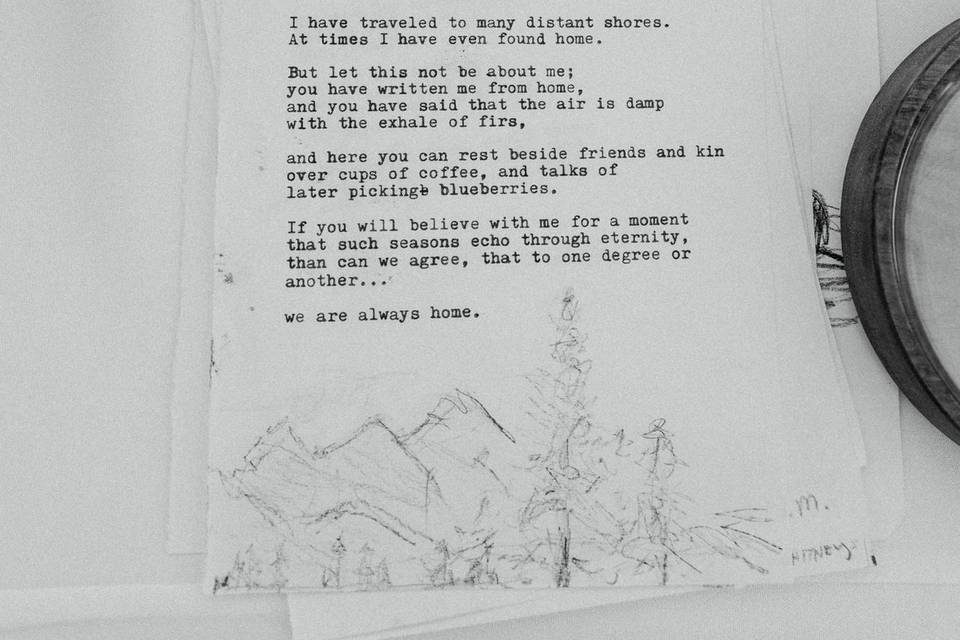 I have traveled to many distant shores.
At times I have even found home.
But let this not be about me;
you have written me from home,
and you have said that the air is damp
with the exhale of firs,
and here you can rest beside friends and kin
over cups of coffee, and talks of
later picking blueberries.
If you will believe with me for a moment
that such seasons echo through eternity,
than can we agree, that to one degree or
another...
we are always home.
.M.